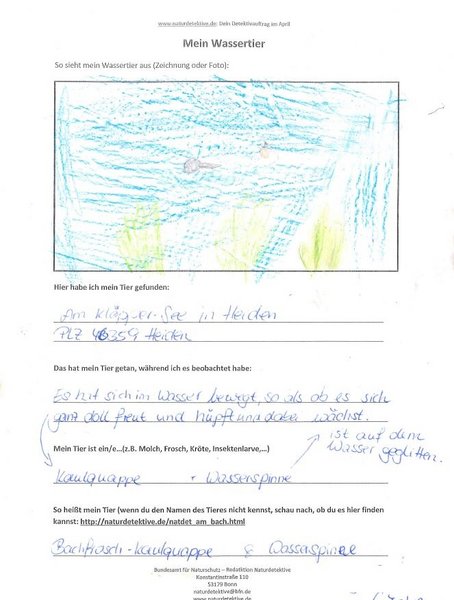 www.naturdetektive.de: Dein Detektivauftrag im April
Mein Wassertier
So sieht mein Wassertier aus (Zeichnung oder Foto):
Hier habe ich mein Tier gefunden:
Am See in Heiden
PLZ 46359 Heiden
Das hat mein Tier getan, während ich es beobachtet habe:
Es hat sich im Wasser bewegt, so als ob es sich
ganz doll freut und hüpft und dabei wächst.
ist auf dem
Wasser geglitten.
Mein Tier ist ein/e...(z.B. Molch, Frosch, Kröte, Insektenlarve,...)
Kaulquappe + Wasserspinne
So heißt mein Tier (wenn du den Namen des Tieres nicht kennst, schau nach, ob du es hier finden
kannst: http://naturdetektive.de/natdet_am_bach.html
Bachfrosch-Kaulquappe & Wasserspinne
Bundesamt für Naturschutz – Redaktion Naturdetektive
Konstantinstraße 110
53179 Bonn
naturdetektive@bfn.de
www.naturdetektive.de